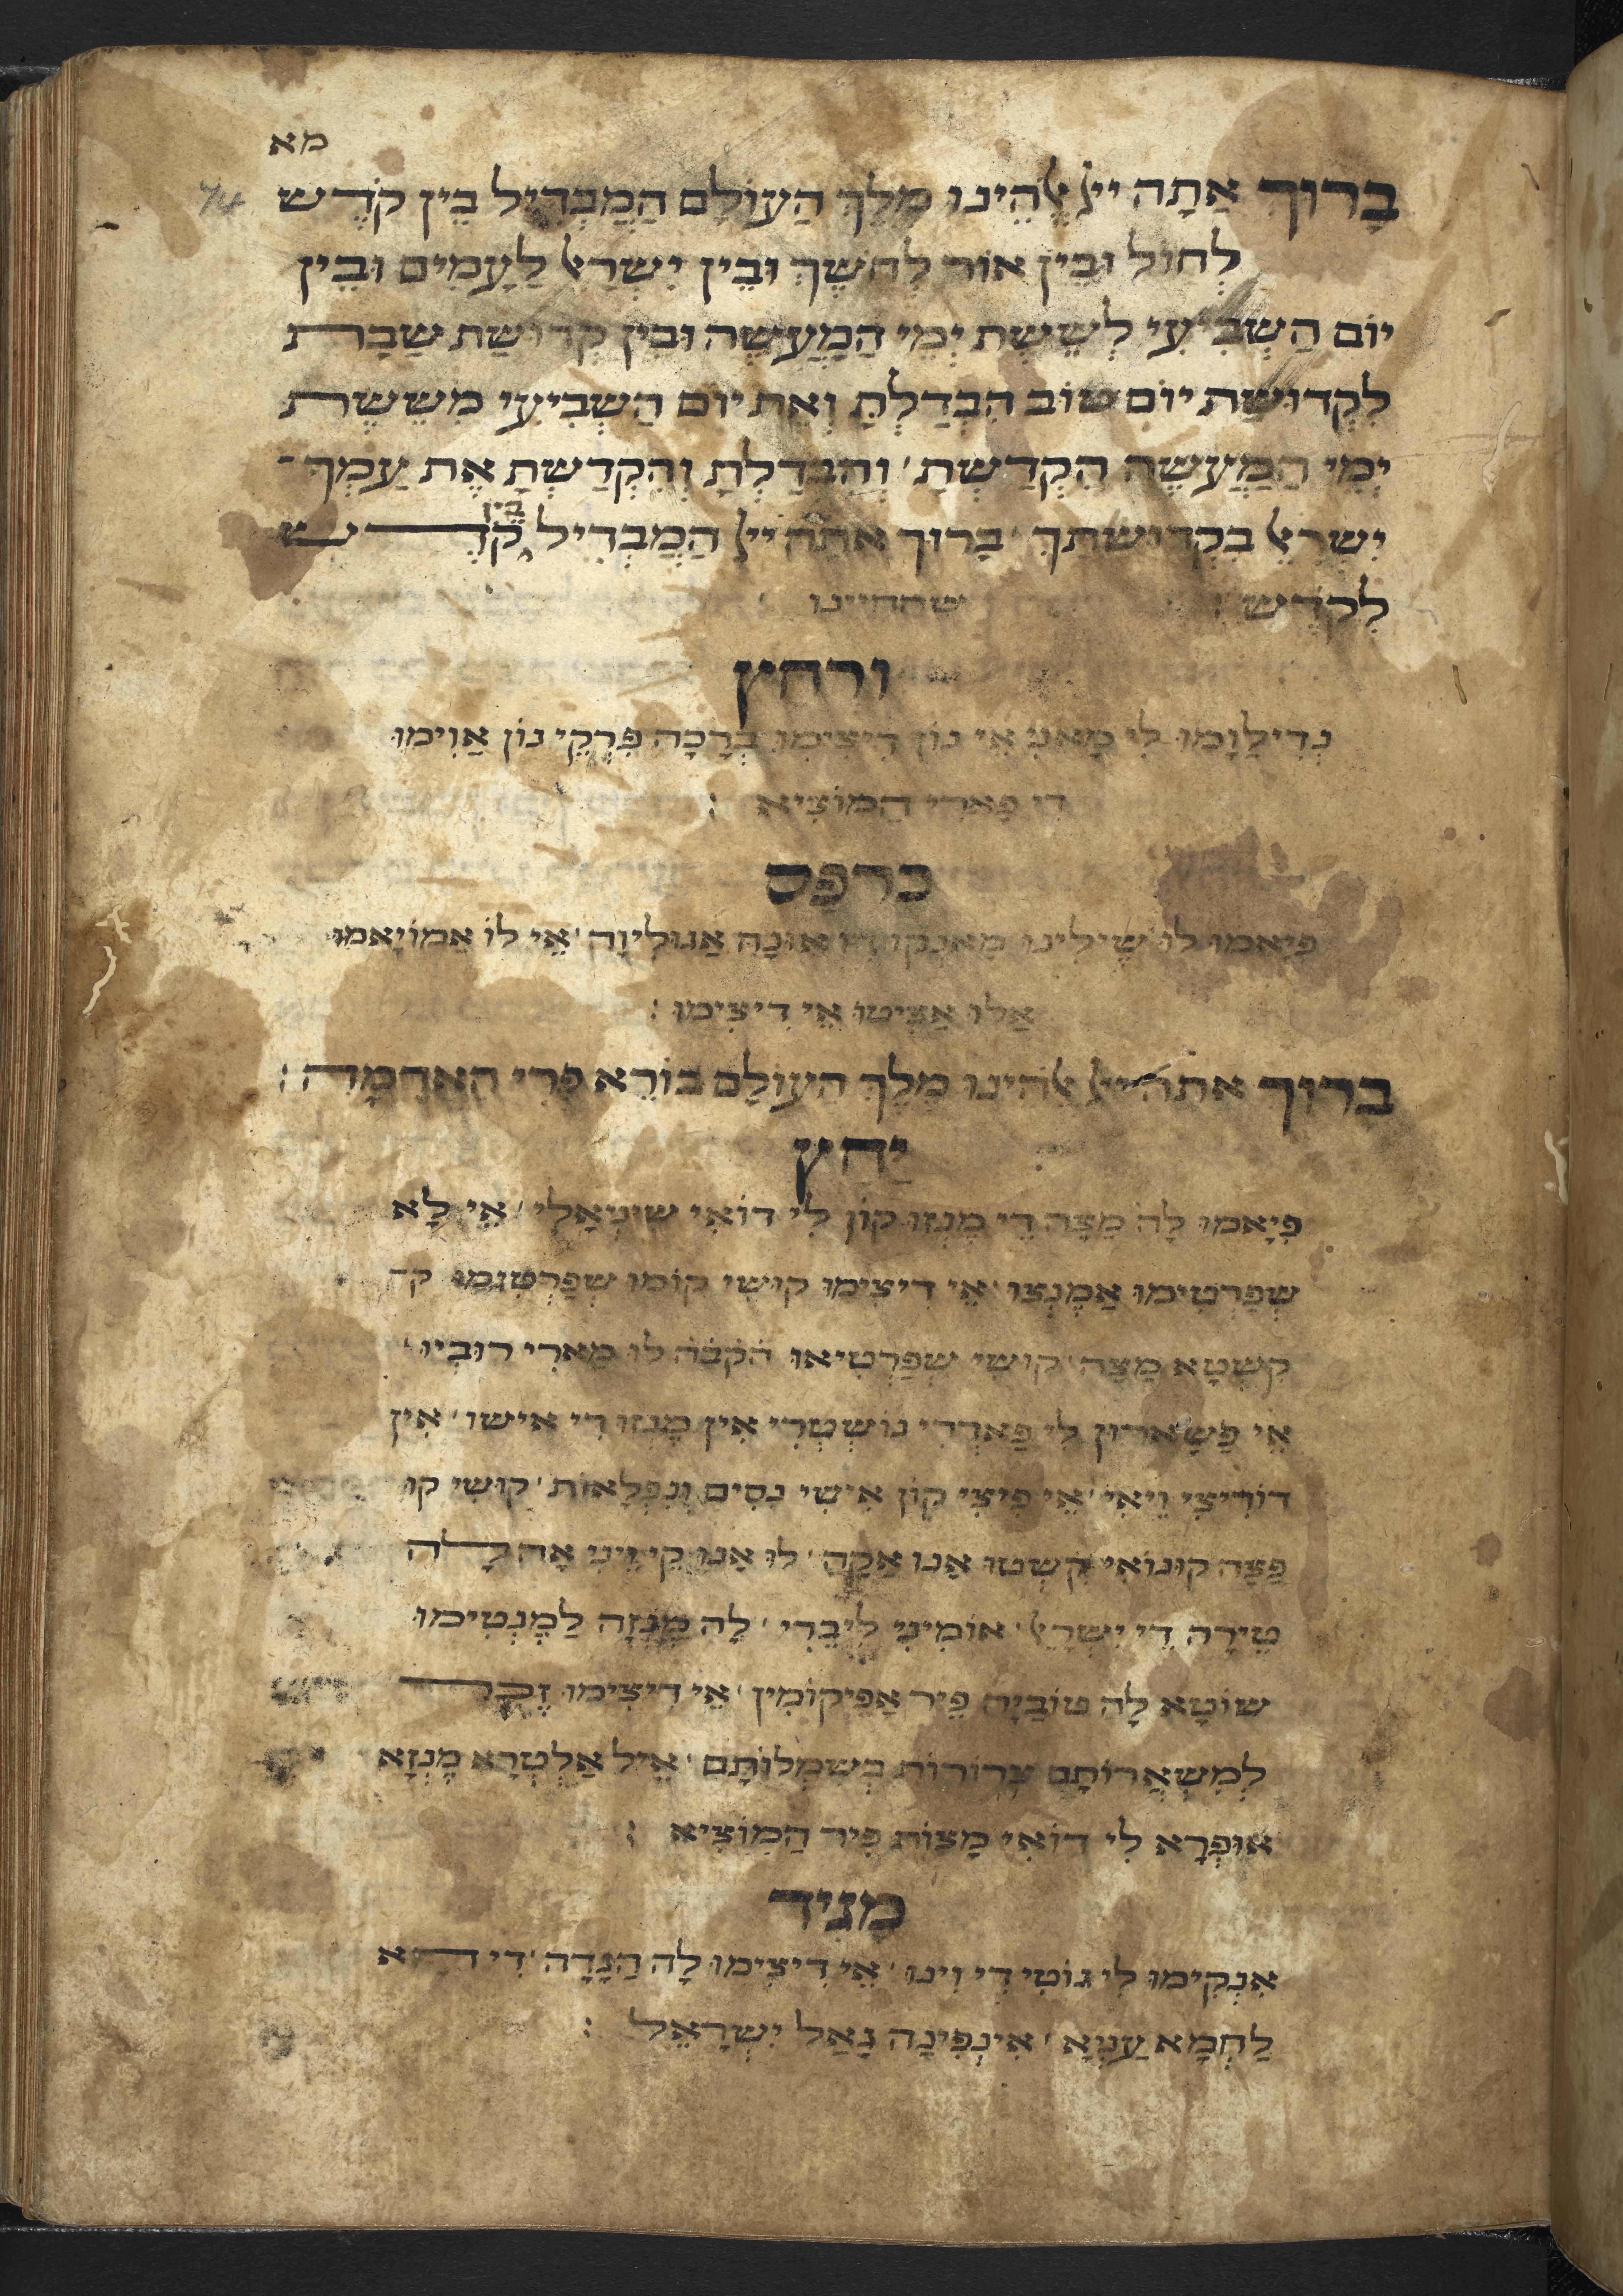 מא
בָרוּךְ אַתָה ייָ אֱלֹהֵינוּ מֶלֶךְ הַעוֹלָם הַמַבְדִיל בֵין קֹדֶש
לְחוֹל וּבֵין אוֹר לְחֹשֶךְ וּבֵין יִשְרָאֵל לָעַמִים וּבֵין
יוֹם הַשְבִיעִי לְשֵשֶת יְמֵי הַמַעֲשֶה וּבֵין קְדוּשַת שַבָת
לִקְדוּשַת יוֹם טוֹב הִבְדַלְתָ וְאֶת יוֹם הַשְבִיעִי מִשֵשֶת
יְמֵי הַמַעֲשֶה הִקְדַשְתָ׳ וְהִבְדַלְתָ וְהִקְדַשְתָ אֶת עַמְךָ
יִשְרָאֵל בִקְדוּשָתֶךָ׳ בָרוּךְ אַתָה ייָ הַמַבְדִיל בֵין קֹדֶש
לְקֹדֶש שהחיינו
ורחץ
נְדִילַוָמוּ לִי מָאנִי אֵי נוֹן דִיצִימוּ בְרָכָה פִרְקֵי נוֹן אַוִימוּ
דִי פָארֵי הַמוֹצִיא :
כרפס
פִיָאמוּ לוּ שֶילִינוּ אוּנָה אַגוּלִיוָה׳ אֵי לוֹ אַמוֹיָאמוּ
אַלוּ אַצֵיטוּ אֵי דִיצִימוּ :
בָרוּךְ אתה ייָ אֱלֹהֵינוּ מֶלֶךְ הַעוֹלָם בוֹרֵא פְרִי הַאֲדָמָה :
יַחַץ
פִיָאמוּ לָה מַצָה דֵי מֶיְזוּ קוֹן לִי דוֹאִי שוּטְאָלִי׳ אֵי לָא
שְפַרְטִימוּ אַמֶנְצוּ׳ אֵי דִיצִימוּ קוּשִי קוֹמוּ שְפַרְטִימוּ
קִשְטָא מַצָה׳ קוּשִי שְפַרְטִיאוּ הֹקֹבֹהֹ לוּ מָארֵי רוּבְיוּ׳
אֵי פַשָארוֹן לִי פַאדְרִי נוֹשְטְרִי אִין מֶיְזוּ דִי אישוּ׳ אִין
דוֹדִיצִי וִיאֵי׳ אֵי פֵיצֵי קוֹן אִישִי נִסִים וְנִפְלָאוֹת׳ קוּשִי קוּ
פַצָה קוּנוֹאִי קִשְטוּ אַנוּ אַקָה׳ לוּ אַנוּ קֵי וֵינֵי אָה לָה
טֵירָה דֵי יִשְרָאֵל׳ אוֹמִינִי לִיבֵרִי׳ לָה מֶיְזָה לַמֶנְטִימוּ
שוֹטָא לָה טוֹבַיָה פֵיר אַפִיקוֹמִין׳ אֵי דִיצִימוּ זֵכֶר
לְמִשְאֲרוֹתָם צְרוּרוֹת בְשִמְלוֹתָם׳ אֵיל אַלְטְרָא מֶיְזָא
שוּפְרָא לִי דוֹאִי מַצוֹת פֵיר הַמוֹצִיא :
מַגִיד
אִנְקִימוּ לִי גוֹטִי דִי וִינוּ׳ אֵי דִיצִימוּ לָה הַגָדָה׳ דִי הָא
לַחְמָא עַנְיָא׳ אִינְפִינָה גָאַל יִשְרָאֵל :